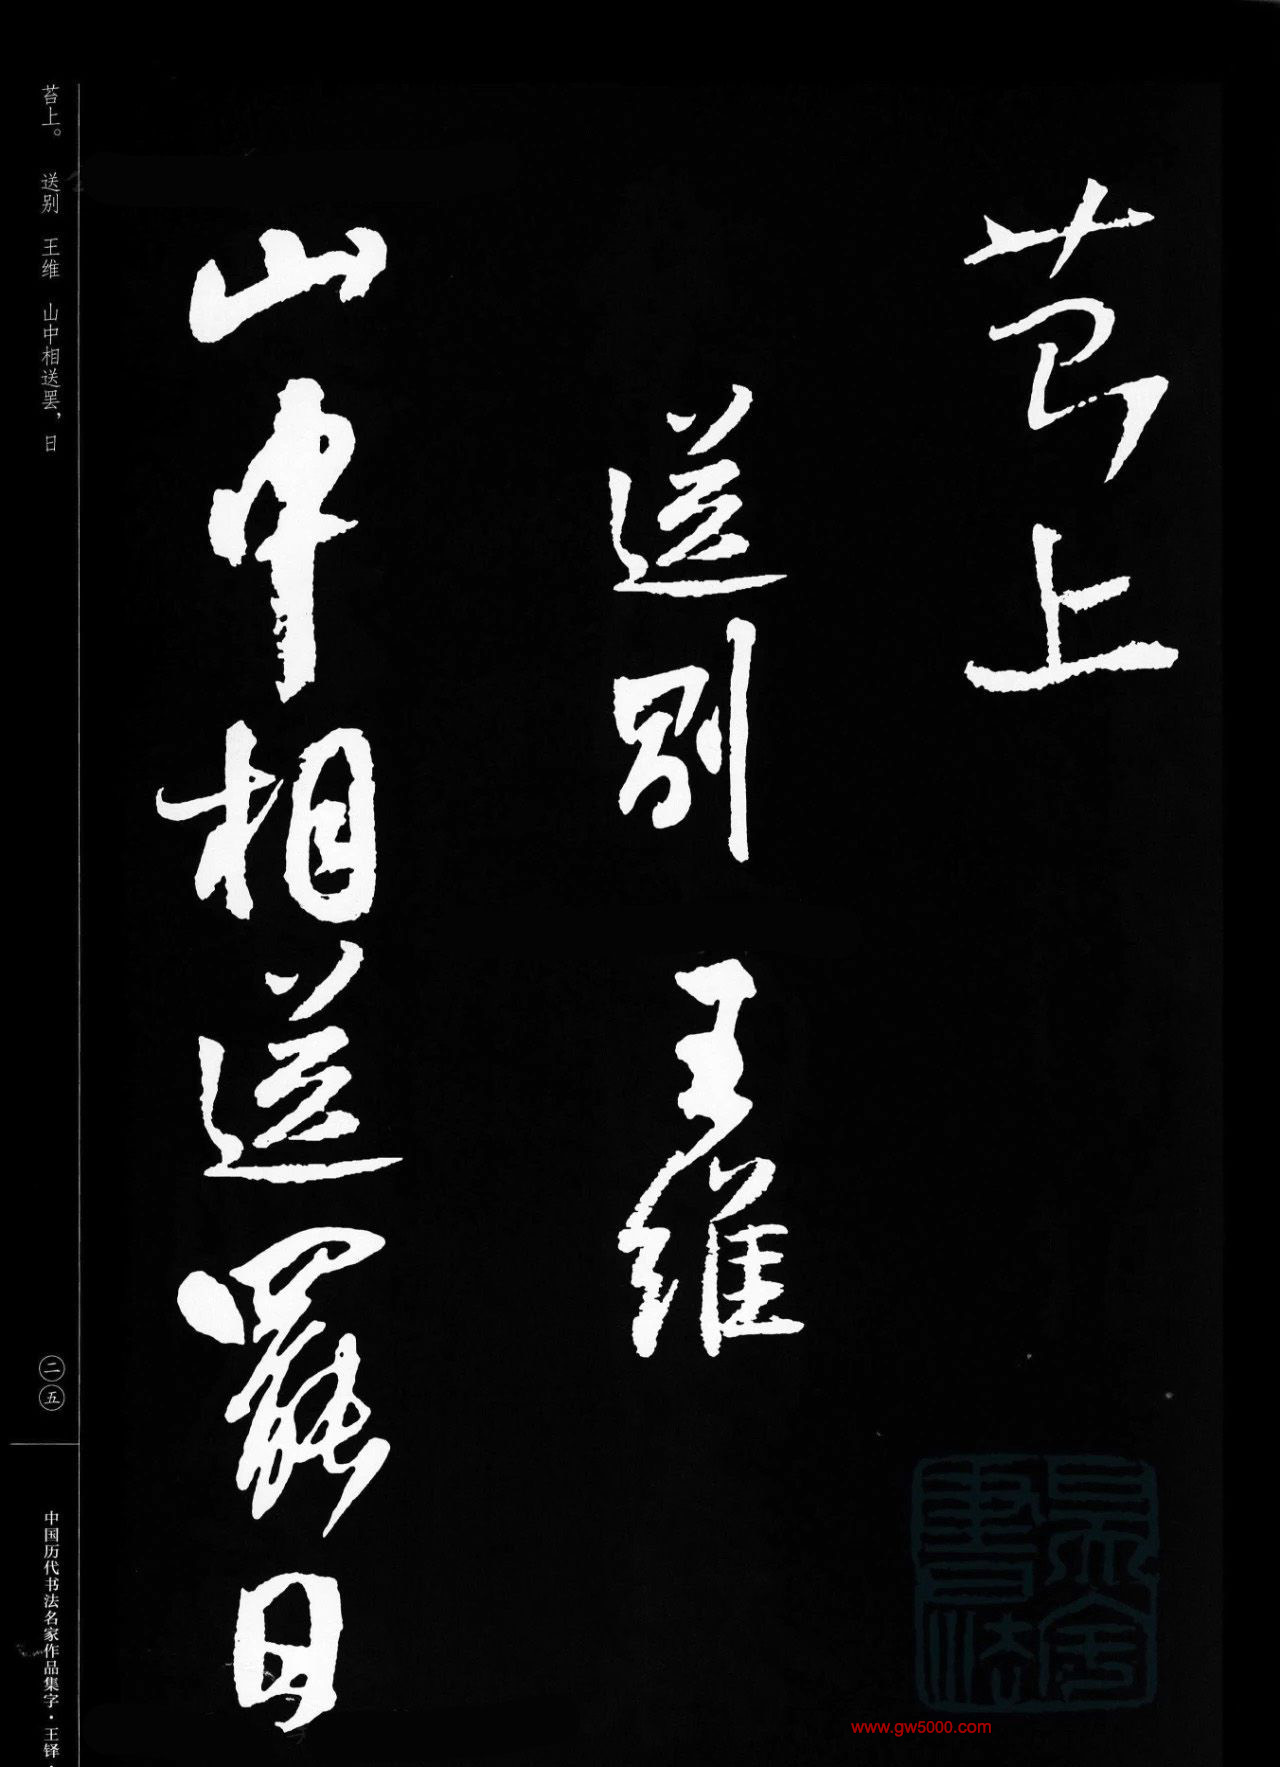 苔上
送别 王维
山中相送罢日
苔上。 送别 王维 山中相送罢，日
二五
中国历代书法名家作品集字·王铎·
www.gw5000.com